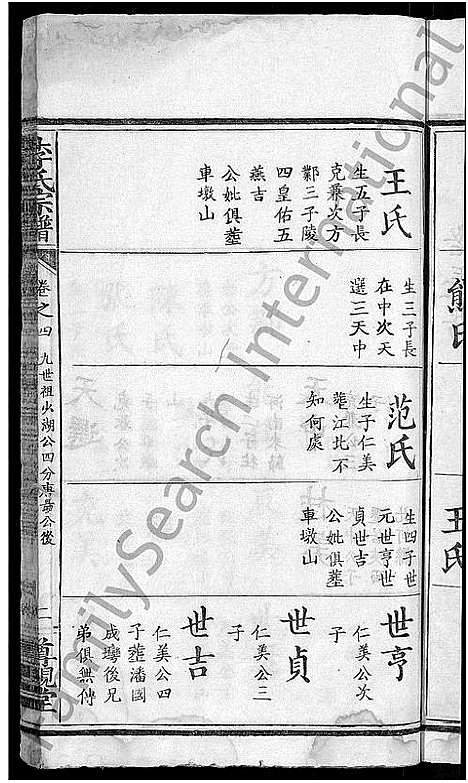 王氏
生五子長
克兼次方
鄴三子陵
四皇佑五
燕吉
公妣俱塟
車墩山
生三子長
在中次天
選三天中
范氏
生子仁美
塟江北不
知何處
生四子世
元世亨世
貞世吉
公妣俱塟
車墩山
世亨
仁美公次
子
世貞
仁美公三
子
世吉
仁美公四
子塟潘國
成壪後兄
弟俱無傳
李氏宗譜
卷之四
九世祖必湖公四分
公後
二
尊親堂
熊氏
王氏
FamilySearch International